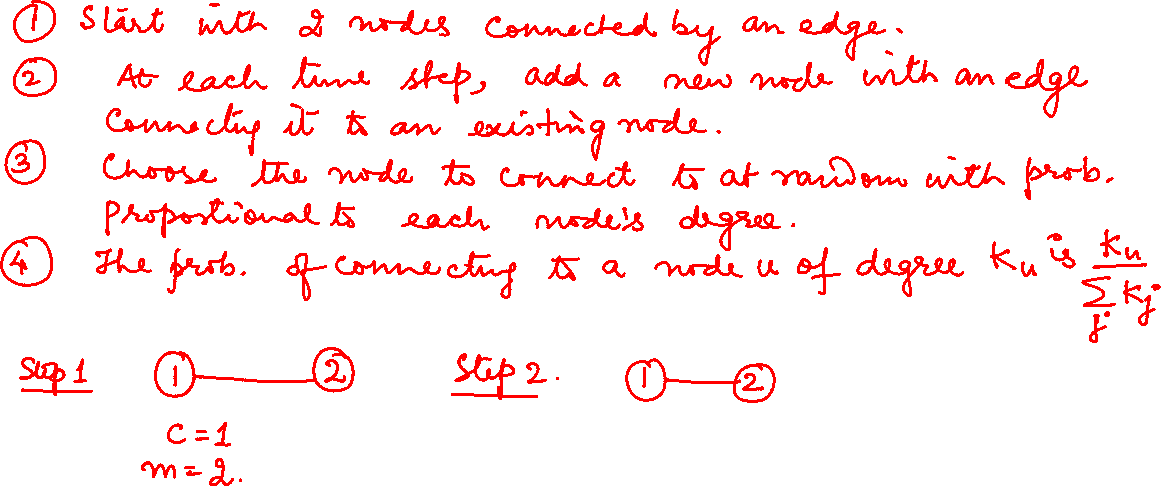 ① Start with 2 nodes connected by an edge.
② At each time step, add a new node with an edge
connecting it to an existing node.
③ Choose the node to connect to at random with prob.
proportional to each node's degree.
④ The prob. of connecting to a node u of degree k_u is k_u / ∑_j k_j
Step 1 ① ② Step 2. ① ②
C = 1
m = 2.